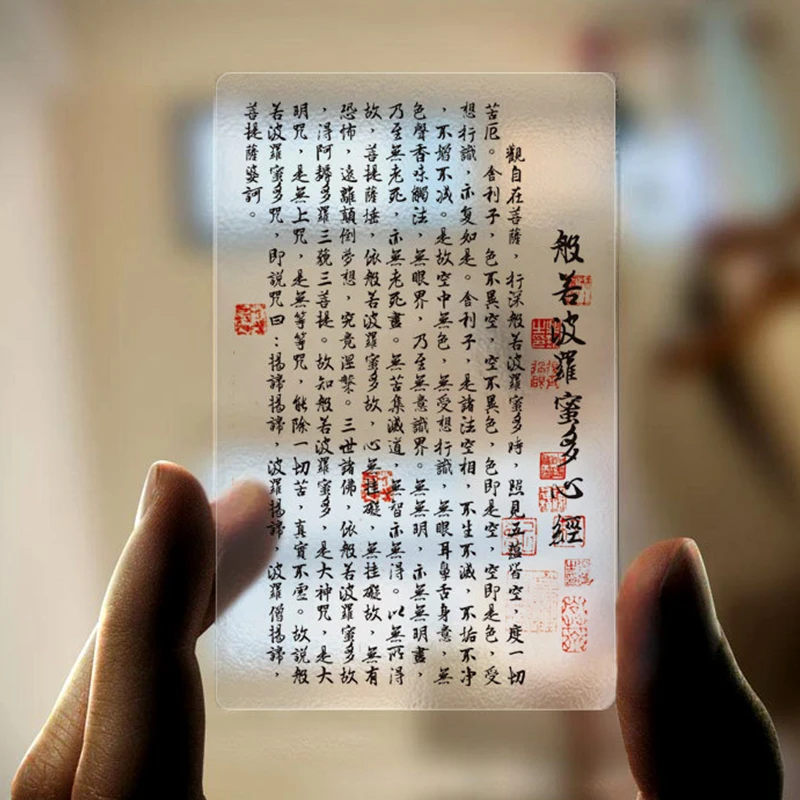 般若波羅蜜多心經
觀自在菩薩，行深般若波羅蜜多時，照見五蘊皆空，度一切
苦厄。舍利子，色不異空，空不異色，色即是空，空即是色，受
想行識，亦复如是。舍利子，是諸法空相，不生不滅，不垢不净
，不增不减。是故空中無色，無受想行識，無眼耳鼻舌身意，無
色聲香味觸法，無眼界，乃至無意識界。無無明，亦無無明盡，
乃至無老死，亦無老死盡。無苦集滅道，無智亦無得。以無所得
故，菩提薩埵，依般若波羅蜜多故，心無挂礙，無挂礙故，無有
恐怖，遠離顛倒夢想，究竟涅槃。三世諸佛，依般若波羅蜜多故
，得阿耨多羅三藐三菩提。故知般若波羅蜜多，是大神咒，是大
明咒，是無上咒，是無等等咒，能除一切苦，真實不虛。故說般
若波羅蜜多咒，即說咒曰：揭諦揭諦，波羅揭諦，波羅僧揭諦，
菩提薩婆訶。